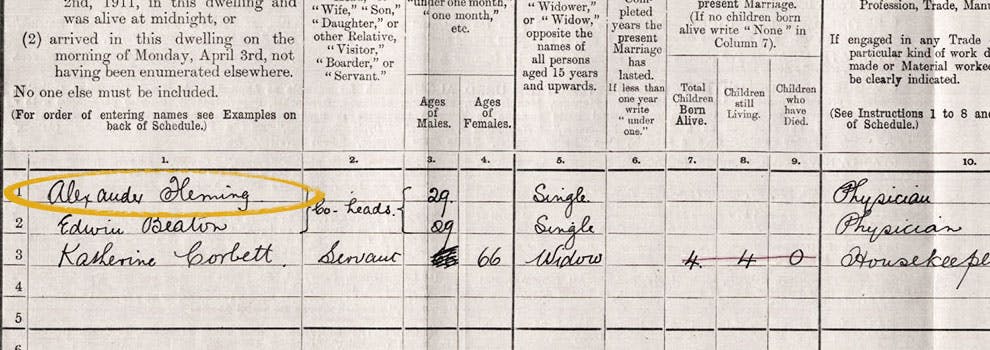 2nd, 1911, in this dwelling and
was alive at midnight, or
(2) arrived in this dwelling on the
morning of Monday, April 3rd, not
having been enumerated elsewhere.
No one else must be included.
(For order of entering names see Examples on
back of Schedule.)
"Wife," "Son,"
"Daughter," or
other Relative,
"Visitor,"
"Boarder," or
"Servant."
"under one month,"
"one month,"
etc.
Ages
of
Males.
Ages
of
Females.
"Widower,"
or "Widow,"
opposite the
names of
all persons
aged 15 years
and upwards.
Com-
pleted
years the
present
Marriage
has
lasted.
If less than
one year
write
"under
one."
present Marriage.
(If no children born
alive write "None" in
Column 7).
Total
Children
Born
Alive.
Children
still
Living.
Children
who
have
Died.
Profession, Trade, Manu
If engaged in any Trade
particular kind of work d
made or Material worke
be clearly indicated.
(See Instructions 1 to 8 and
of Schedule.)
1. 2. 3. 4. 5. 6. 7. 8. 9. 10.
1 Alexander Fleming Co-heads. 29. Single. Physician
2 Edwin Beaton 29 Single Physician
3 Katherine Corbett. Servant 66 Widow 4. 4 0 Housekeepe
4
5